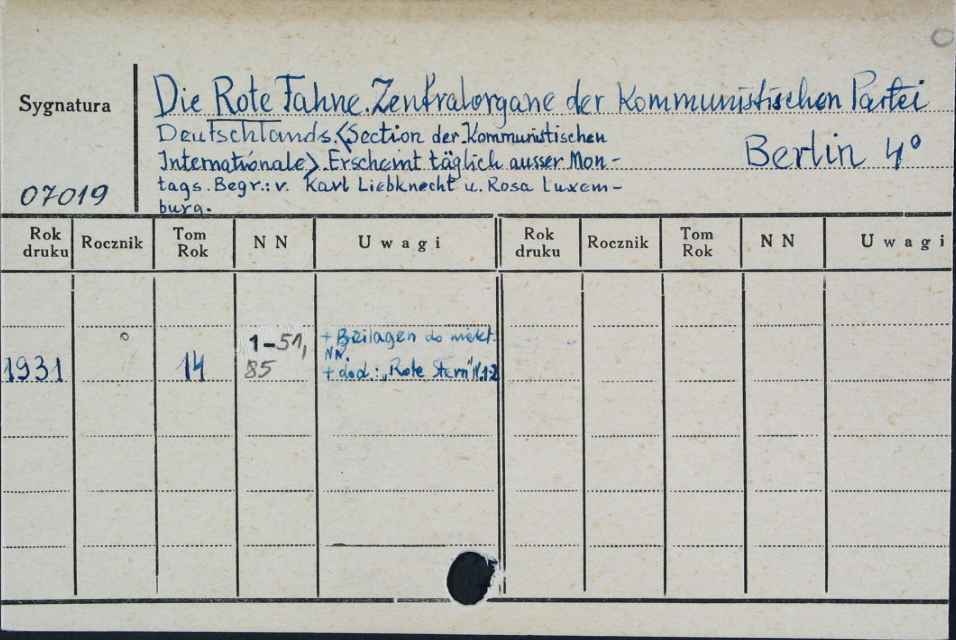 Sygnatura
07019
Die Rote Fahne. Zentralorgane der Kommunistischen Partei
Deutschlands. <Section der Kommunistischen
Internationale>. Erscheint täglich ausser Mon-
tags. Begr.: v. Karl Liebknecht u. Rosa Luxem-
burg.
Berlin 4°
Rok druku Rocznik Tom Rok NN Uwagi Rok druku Rocznik Tom Rok NN Uwagi
1931 14 1-51, 85
+ Beilagen do niekt.
NN.
+ dod.: „Rote Stern" N.1-2